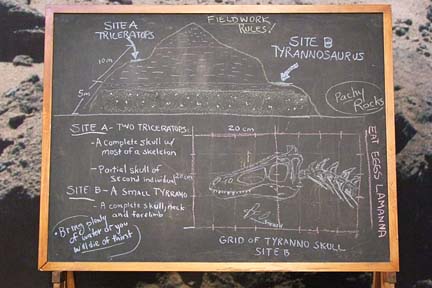 FIELDWORK
RULES!
SITE A
TRICERATOPS
SITE B
TYRANNOSAURUS
10m
5m
Pachy
Rocks
SITE A - TWO TRICERATOPS:
- A complete skull w/
most of a skeleton
- Partial skull of
second individual
SITE B - A SMALL TYRANNO
- A complete skull, neck
and forelimb
• Bring plenty
of water or you
will die of thirst
20 cm
20 cm
EAT EGGS LAMANNA
GRID OF TYRANNO SKULL
SITE B